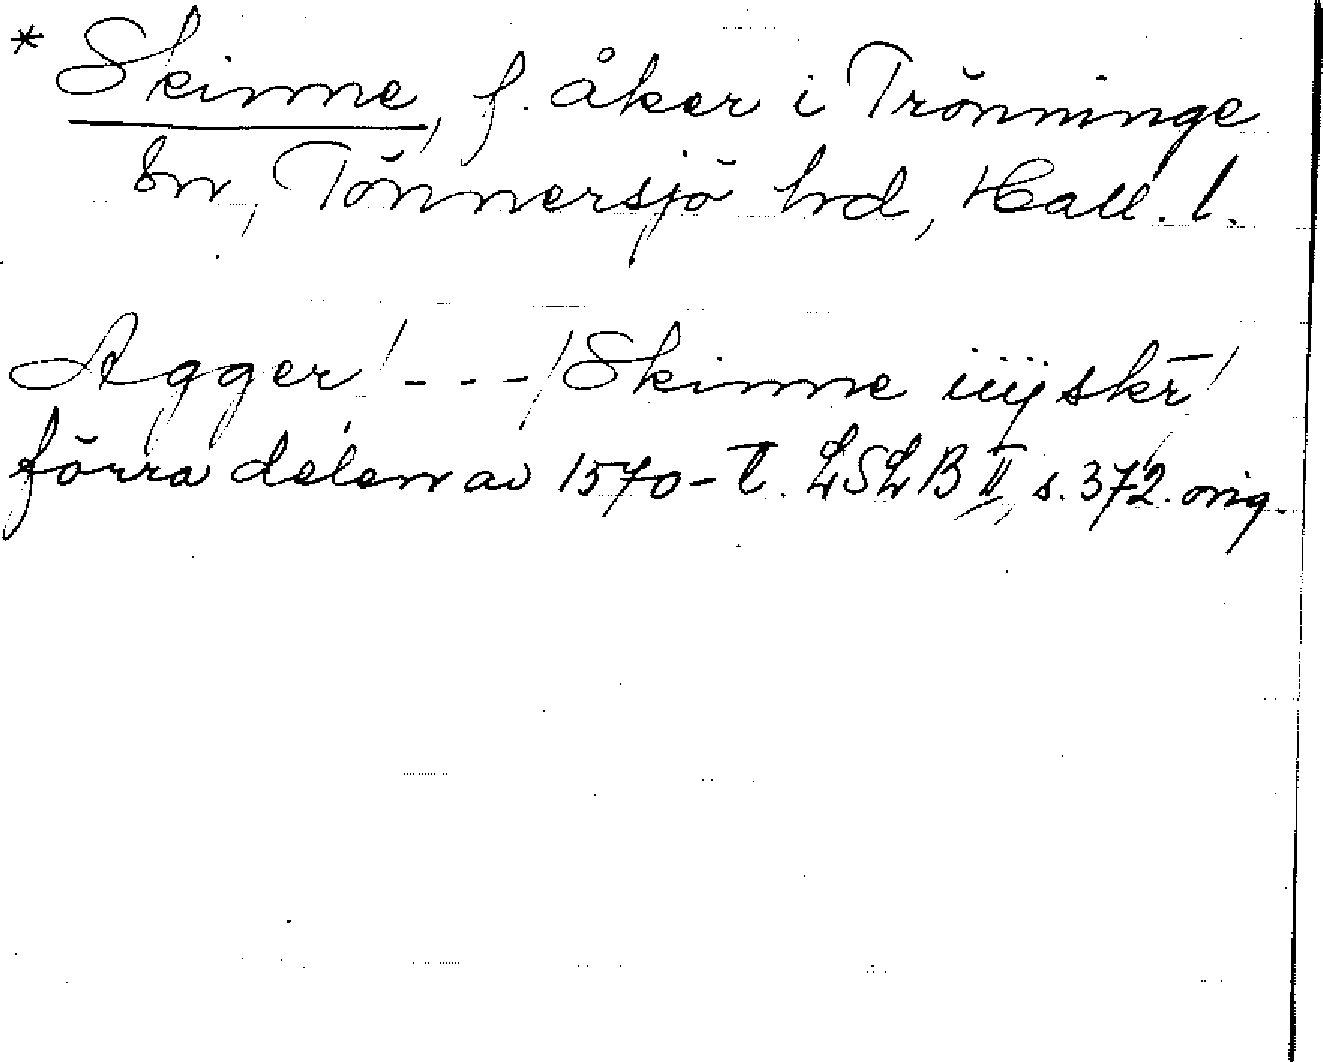 * Skinne, f. åker i Trönninge
sn, Tönnersjö hd, Hall. l.
Agger / - - - / Skinne iiij skr̄ /
förra delen av 1570-t. LSLB II, s. 372. orig.